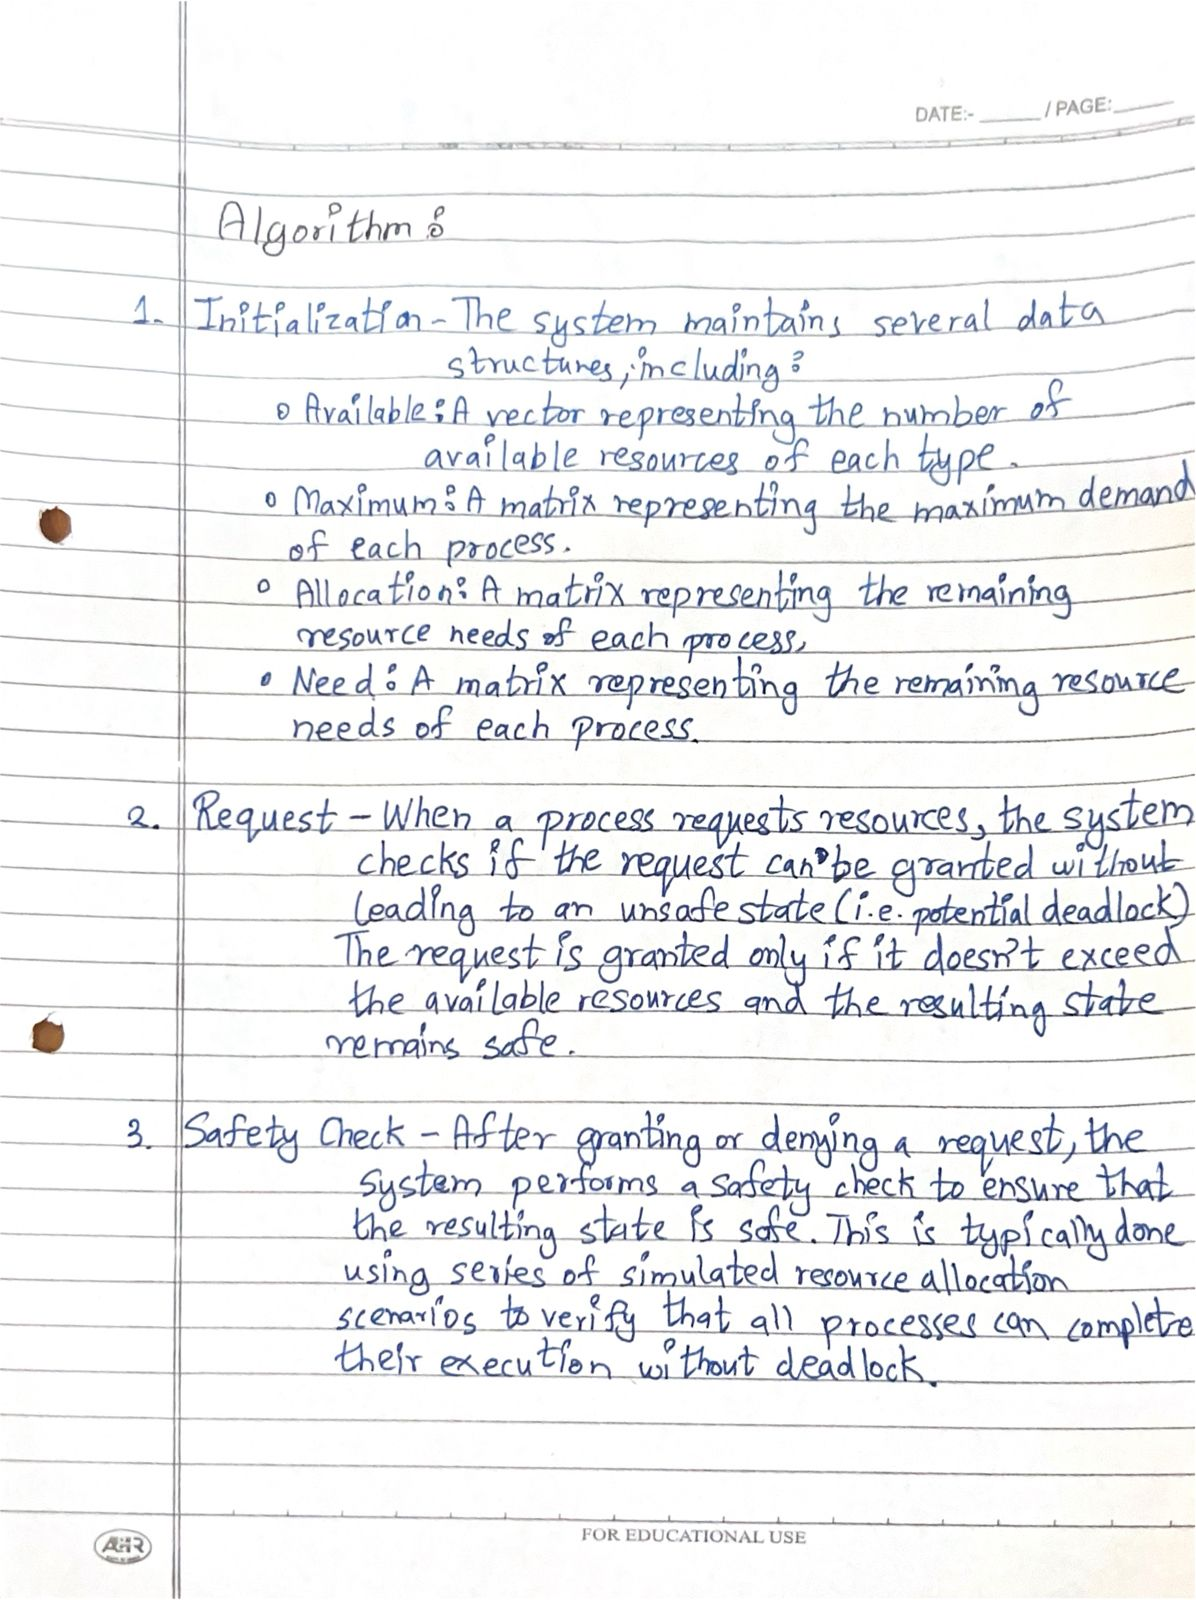 DATE:- ______ / PAGE: ______
Algorithm :
1. Initialization - The system maintains several data
structures, including :
o Available : A vector representing the number of
available resources of each type.
o Maximum : A matrix representing the maximum demand
of each process.
o Allocation : A matrix representing the remaining
resource needs of each process,
• Need : A matrix representing the remaining resource
needs of each process.
2. Request - When a process requests resources, the system
checks if the request can be granted without
leading to an unsafe state (i.e. potential deadlock)
The request is granted only if it doesn't exceed
the available resources and the resulting state
remains safe.
3. Safety Check - After granting or denying a request, the
system performs a safety check to ensure that
the resulting state is safe. This is typically done
using series of simulated resource allocation
scenarios to verify that all processes can complete
their execution without deadlock.
FOR EDUCATIONAL USE
AHR